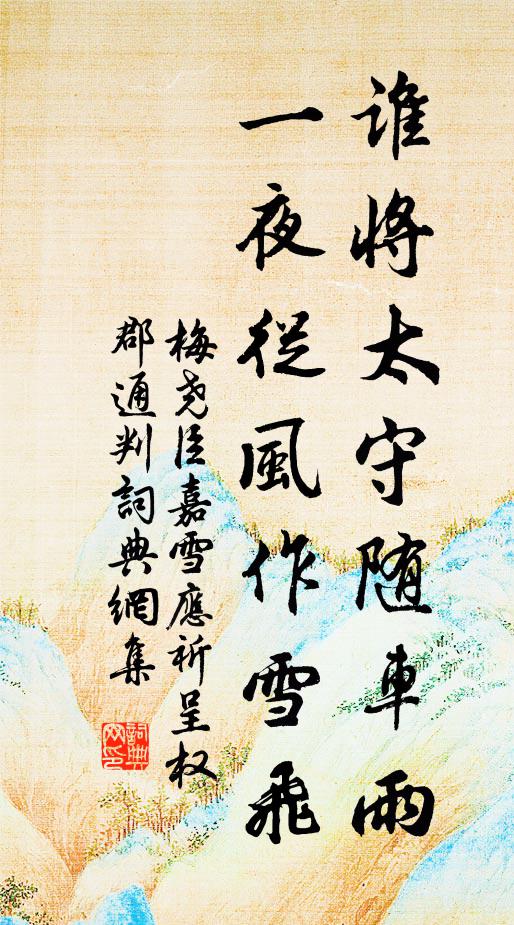 谁将太守随車雨
一夜從風作雪飛
梅尧臣嘉雪應祈呈权
郡通判詞典網集
詞典网印